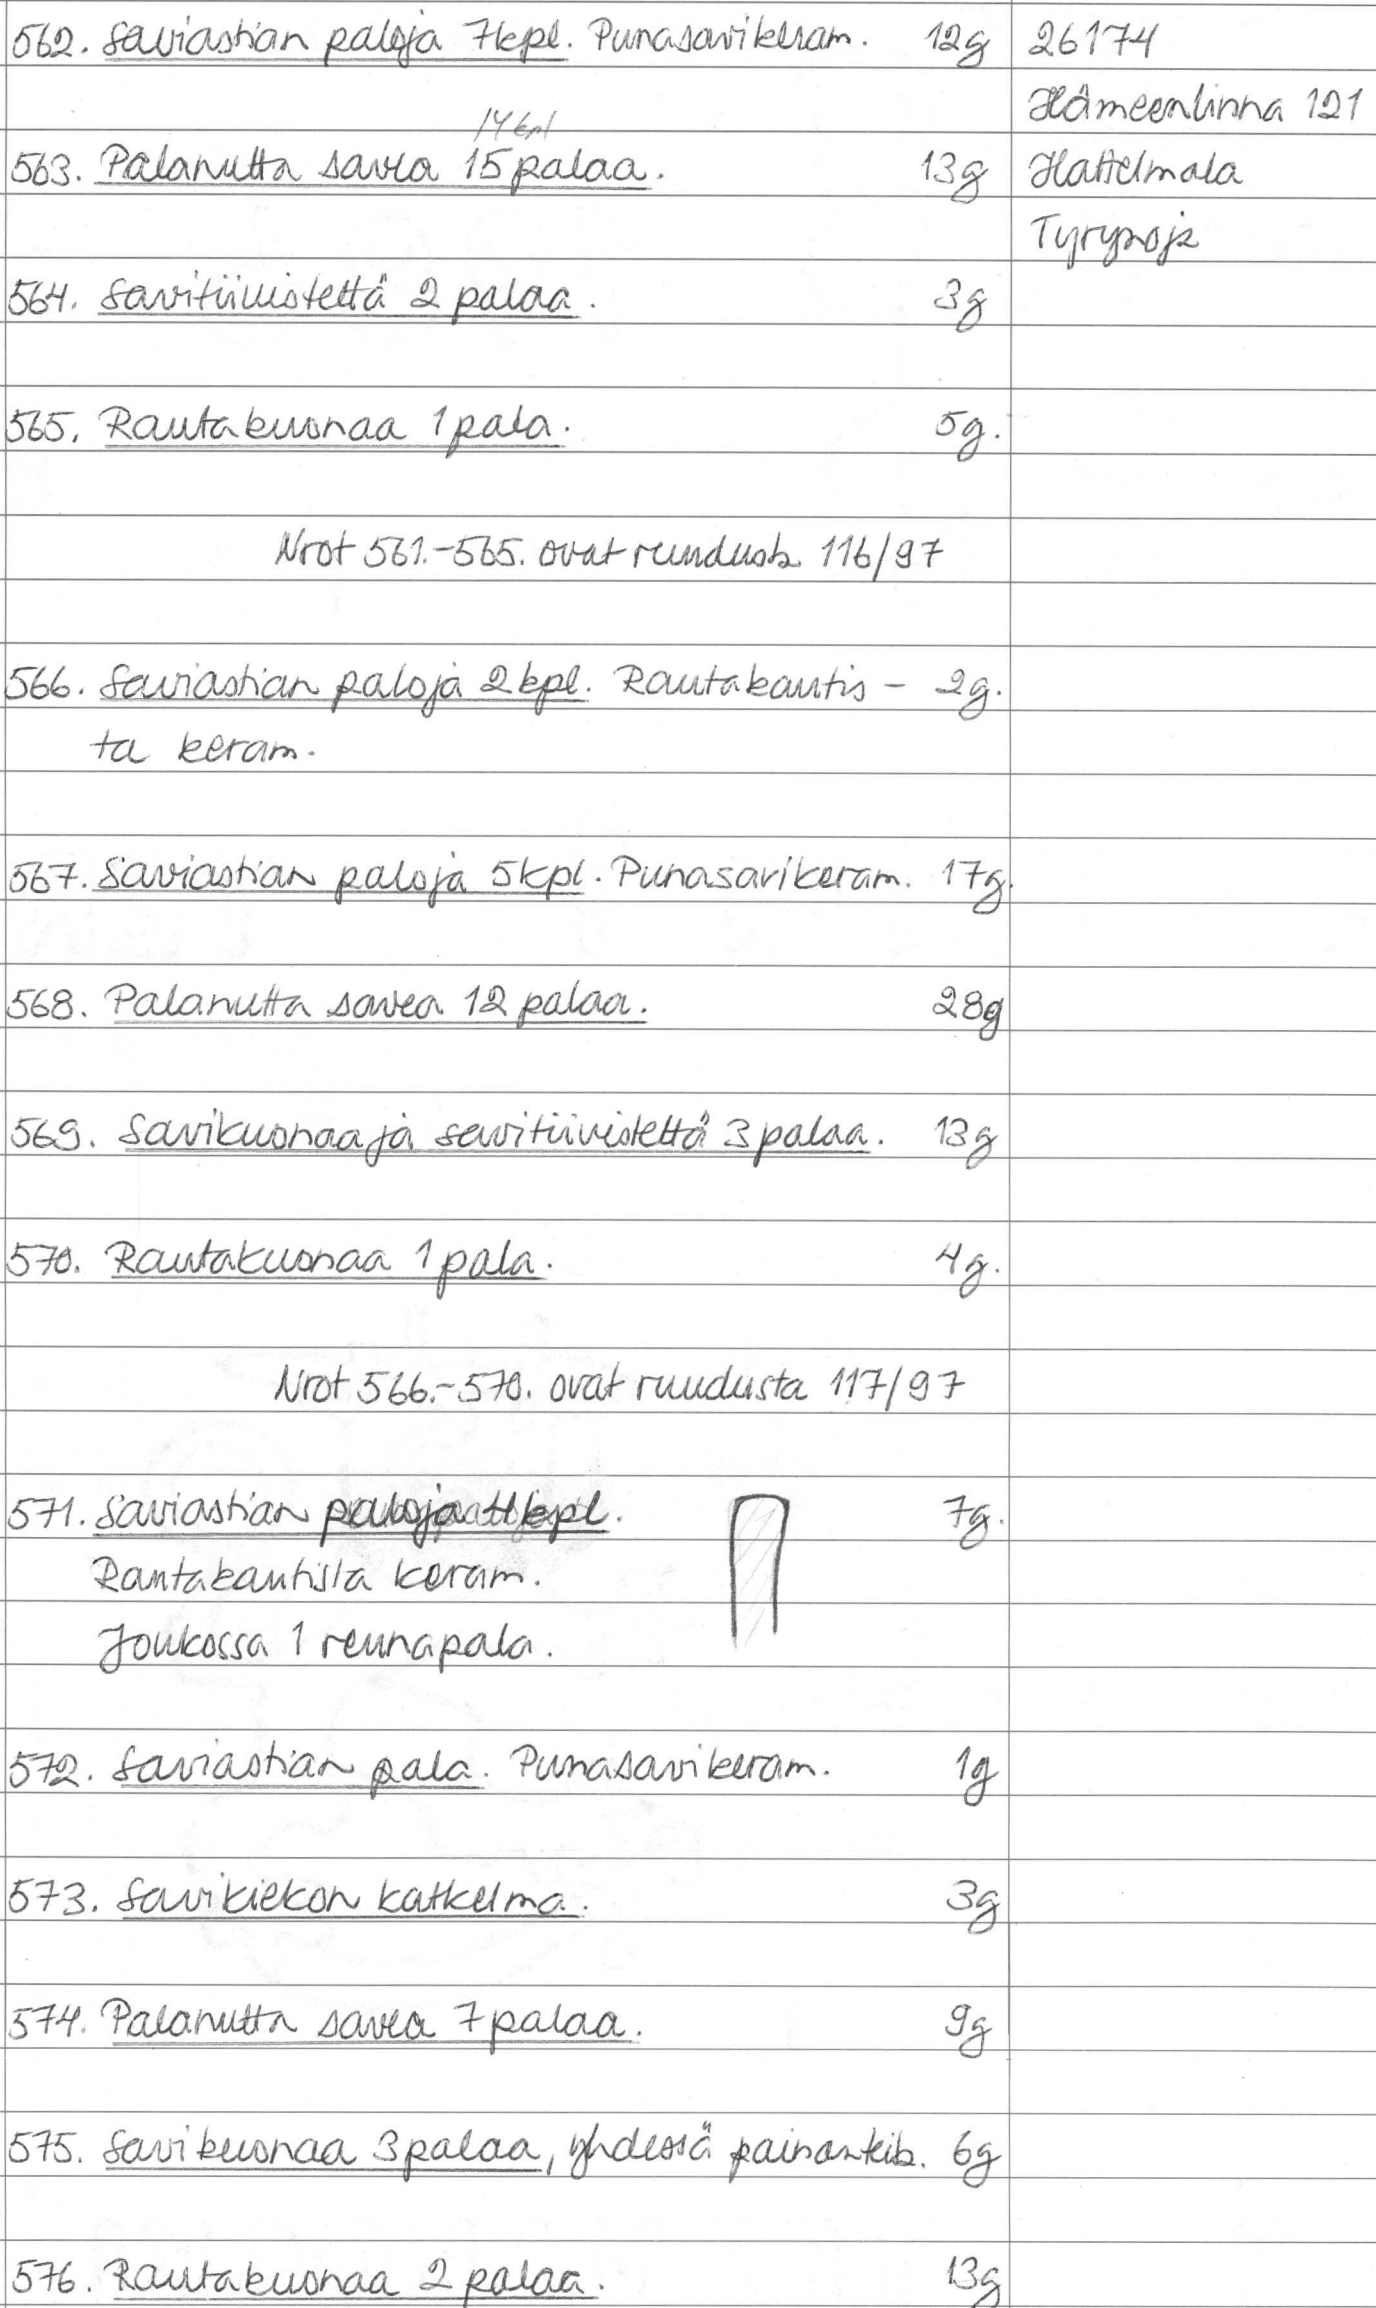 562. Saviastian paloja 7kpl. Punasavikeram. 12g 26174
Hämeenlinna 121
14 kpl
563. Palanutta savea 15 palaa. 13g Hattelmala
Tyrynoja
564. Savitiivistettä 2 palaa. 3g
565. Rautakuonaa 1 pala. 5g.
Nrot 561.-565. ovat ruudusta 116/97
566. Saviastian paloja 2kpl. Rautakautis- 2g.
ta keram.
567. Saviastian paloja 5kpl. Punasavikeram. 17g.
568. Palanutta savea 12 palaa. 28g
569. Savikuonaa ja savitiivistettä 3 palaa. 13g
570. Rautakuonaa 1 pala. 4g.
Nrot 566.-570. ovat ruudusta 117/97
571. Saviastian paloja kpl. 7g.
Rautakautista keram.
Joukossa 1 reunapala.
572. Saviastian pala. Punasavikeram. 1g
573. Savikiekon katkelma. 3g
574. Palanutta savea 7 palaa. 9g
575. Savikuonaa 3 palaa, yhdessä painanteita. 6g
576. Rautakuonaa 2 palaa. 13g